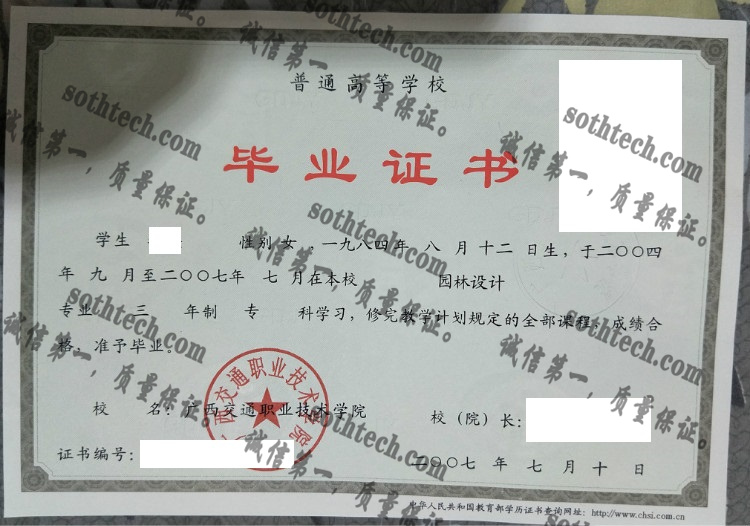 普通高等学校
毕业证书
学生 性别 女 ，一九八四年 八 月 十二 日生，于二〇〇四
年 九 月至二〇〇七年 七 月在本校 园林设计
专业 三 年制 专 科学习，修完教学计划规定的全部课程，成绩合
格，准予毕业。
校 名：广西交通职业技术学院
校（院）长：
证书编号：
二〇〇七 年 七 月 十 日
中华人民共和国教育部学历证书查询网址：http://www.chsi.com.cn
广西交通职业技术学院
sothtech.com
诚信第一，质量保证。
sothtech.com
诚信第一，质量保证。
sothtech.com
诚信第一，质量保证。
sothtech.com
诚信第一，质量保证。
sothtech.com
诚信第一，质量保证。
sothtech.com
诚信第一，质量保证。
sothtech.com
诚信第一，质量保证。
sothtech.com
sothtech.com